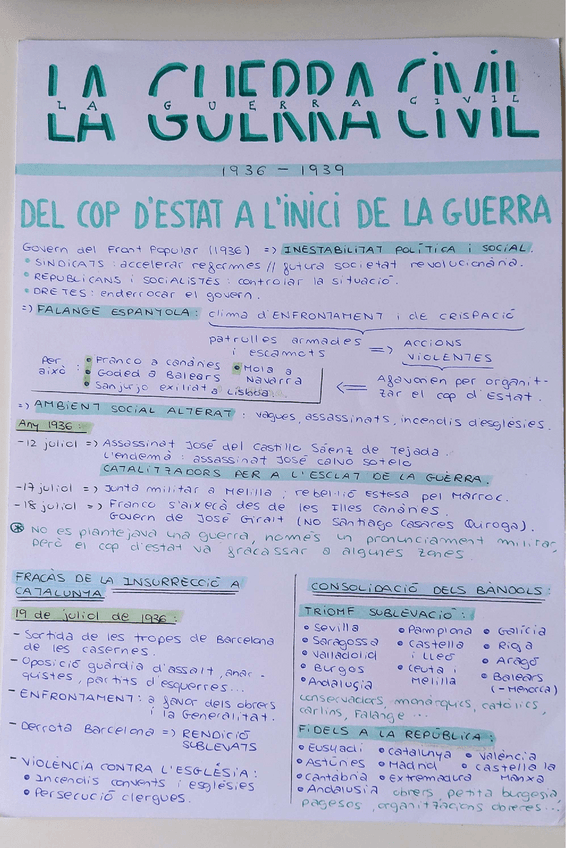 LA GUERRA CIVIL
LA GUERRA CIVIL
1936 - 1939
DEL COP D'ESTAT A L'INICI DE LA GUERRA
Govern del Front Popular (1936) => INESTABILITAT POLÍTICA i SOCIAL.
• SINDICATS : accelerar reformes // futura societat revolucionària.
• REPUBLICANS i SOCIALISTES : controlar la situació.
• DRETES : enderrocar el govern.
=> FALANGE ESPANYOLA : clima d'ENFRONTAMENT i de CRISPACIÓ
patrulles armades => ACCIONS
i escamots VIOLENTES
Per això : • Franco a canàries • Mola a
• Goded a Balears Navarra
• Sanjurjo exiliat a Lisboa
<= Afavoren per organit-
zar el cop d'Estat.
=> AMBIENT SOCIAL ALTERAT : vagues, assassinats, incendis desglesies.
Any 1936 :
-12 juliol => Assassinat José del Castillo Sáenz de Tejada.
L'endemà : assassinat José calvo sotelo
CATALITZADORS PER A L'ESCLAT DE LA GUERRA.
-17 juliol => Junta militar a Melilla ; rebel·lió estesa pel Marroc.
-18 juliol => Franco s'aixecà des de les Illes Canàries.
Govern de José Giralt (NO Santiago Casares Quiroga).
* No es plantejava una guerra, només un pronunciament militar,
però el cop d'estat va fracassar a algunes zones.
FRACÀS DE LA INSURRECCIÓ A
CATALUNYA
19 de juliol de 1936 :
- Sortida de les tropes de Barcelona
de les casernes.
- Oposició guàrdia d'assalt, anar-
quistes, partits d'esquerres...
- ENFRONTAMENT : a favor dels obrers
i la Generalitat.
- Derrota Barcelona => RENDICIÓ
SUBLEVATS
- VIOLÈNCIA CONTRA L'ESGLÉSIA :
• Incendis convents i esglésies
• Persecució clergues.
CONSOLIDACIÓ DELS BÀNDOLS :
TRIOMF SUBLEVACIÓ :
• Sevilla • Pamplona • Galícia
• Saragossa • Castella • Rioja
• Valladolid i Lleó • Aragó
• Burgos • Ceuta i • Balears
• Andalusia Melilla (-Menorca)
conservadors, monàrquics, catòlics,
carlins, Falange ...
FIDELS A LA REPÚBLICA :
• Euskadi • Catalunya • València
• Astúries • Madrid • Castella la
• Cantàbria • Extremadura Manxa
• Andalusia obrers, petita burgesia,
pagesos, organitzacions obreres...